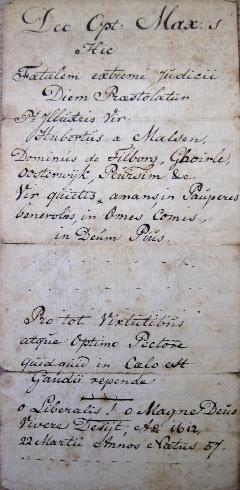 Deo Opt. Max. s
Hic
Fatalem extremi Judicii
Diem Præstolatur
Hubertus a Malsen,
Dominus de Tilborg, Ghoirle,
Oosterwijk, &c
Vir quietis, amans in Pauperes
benevolus, in Omes Comis,
in Deum Pius.
Pro tot Virtutibus
atque Optimo Pectore
quidquid in Cælo est
Gaudii repende
o Liberalis! o Magne Deus
Vivere Desijt, Aº 1612,
22 Martii Annos Natus 57.